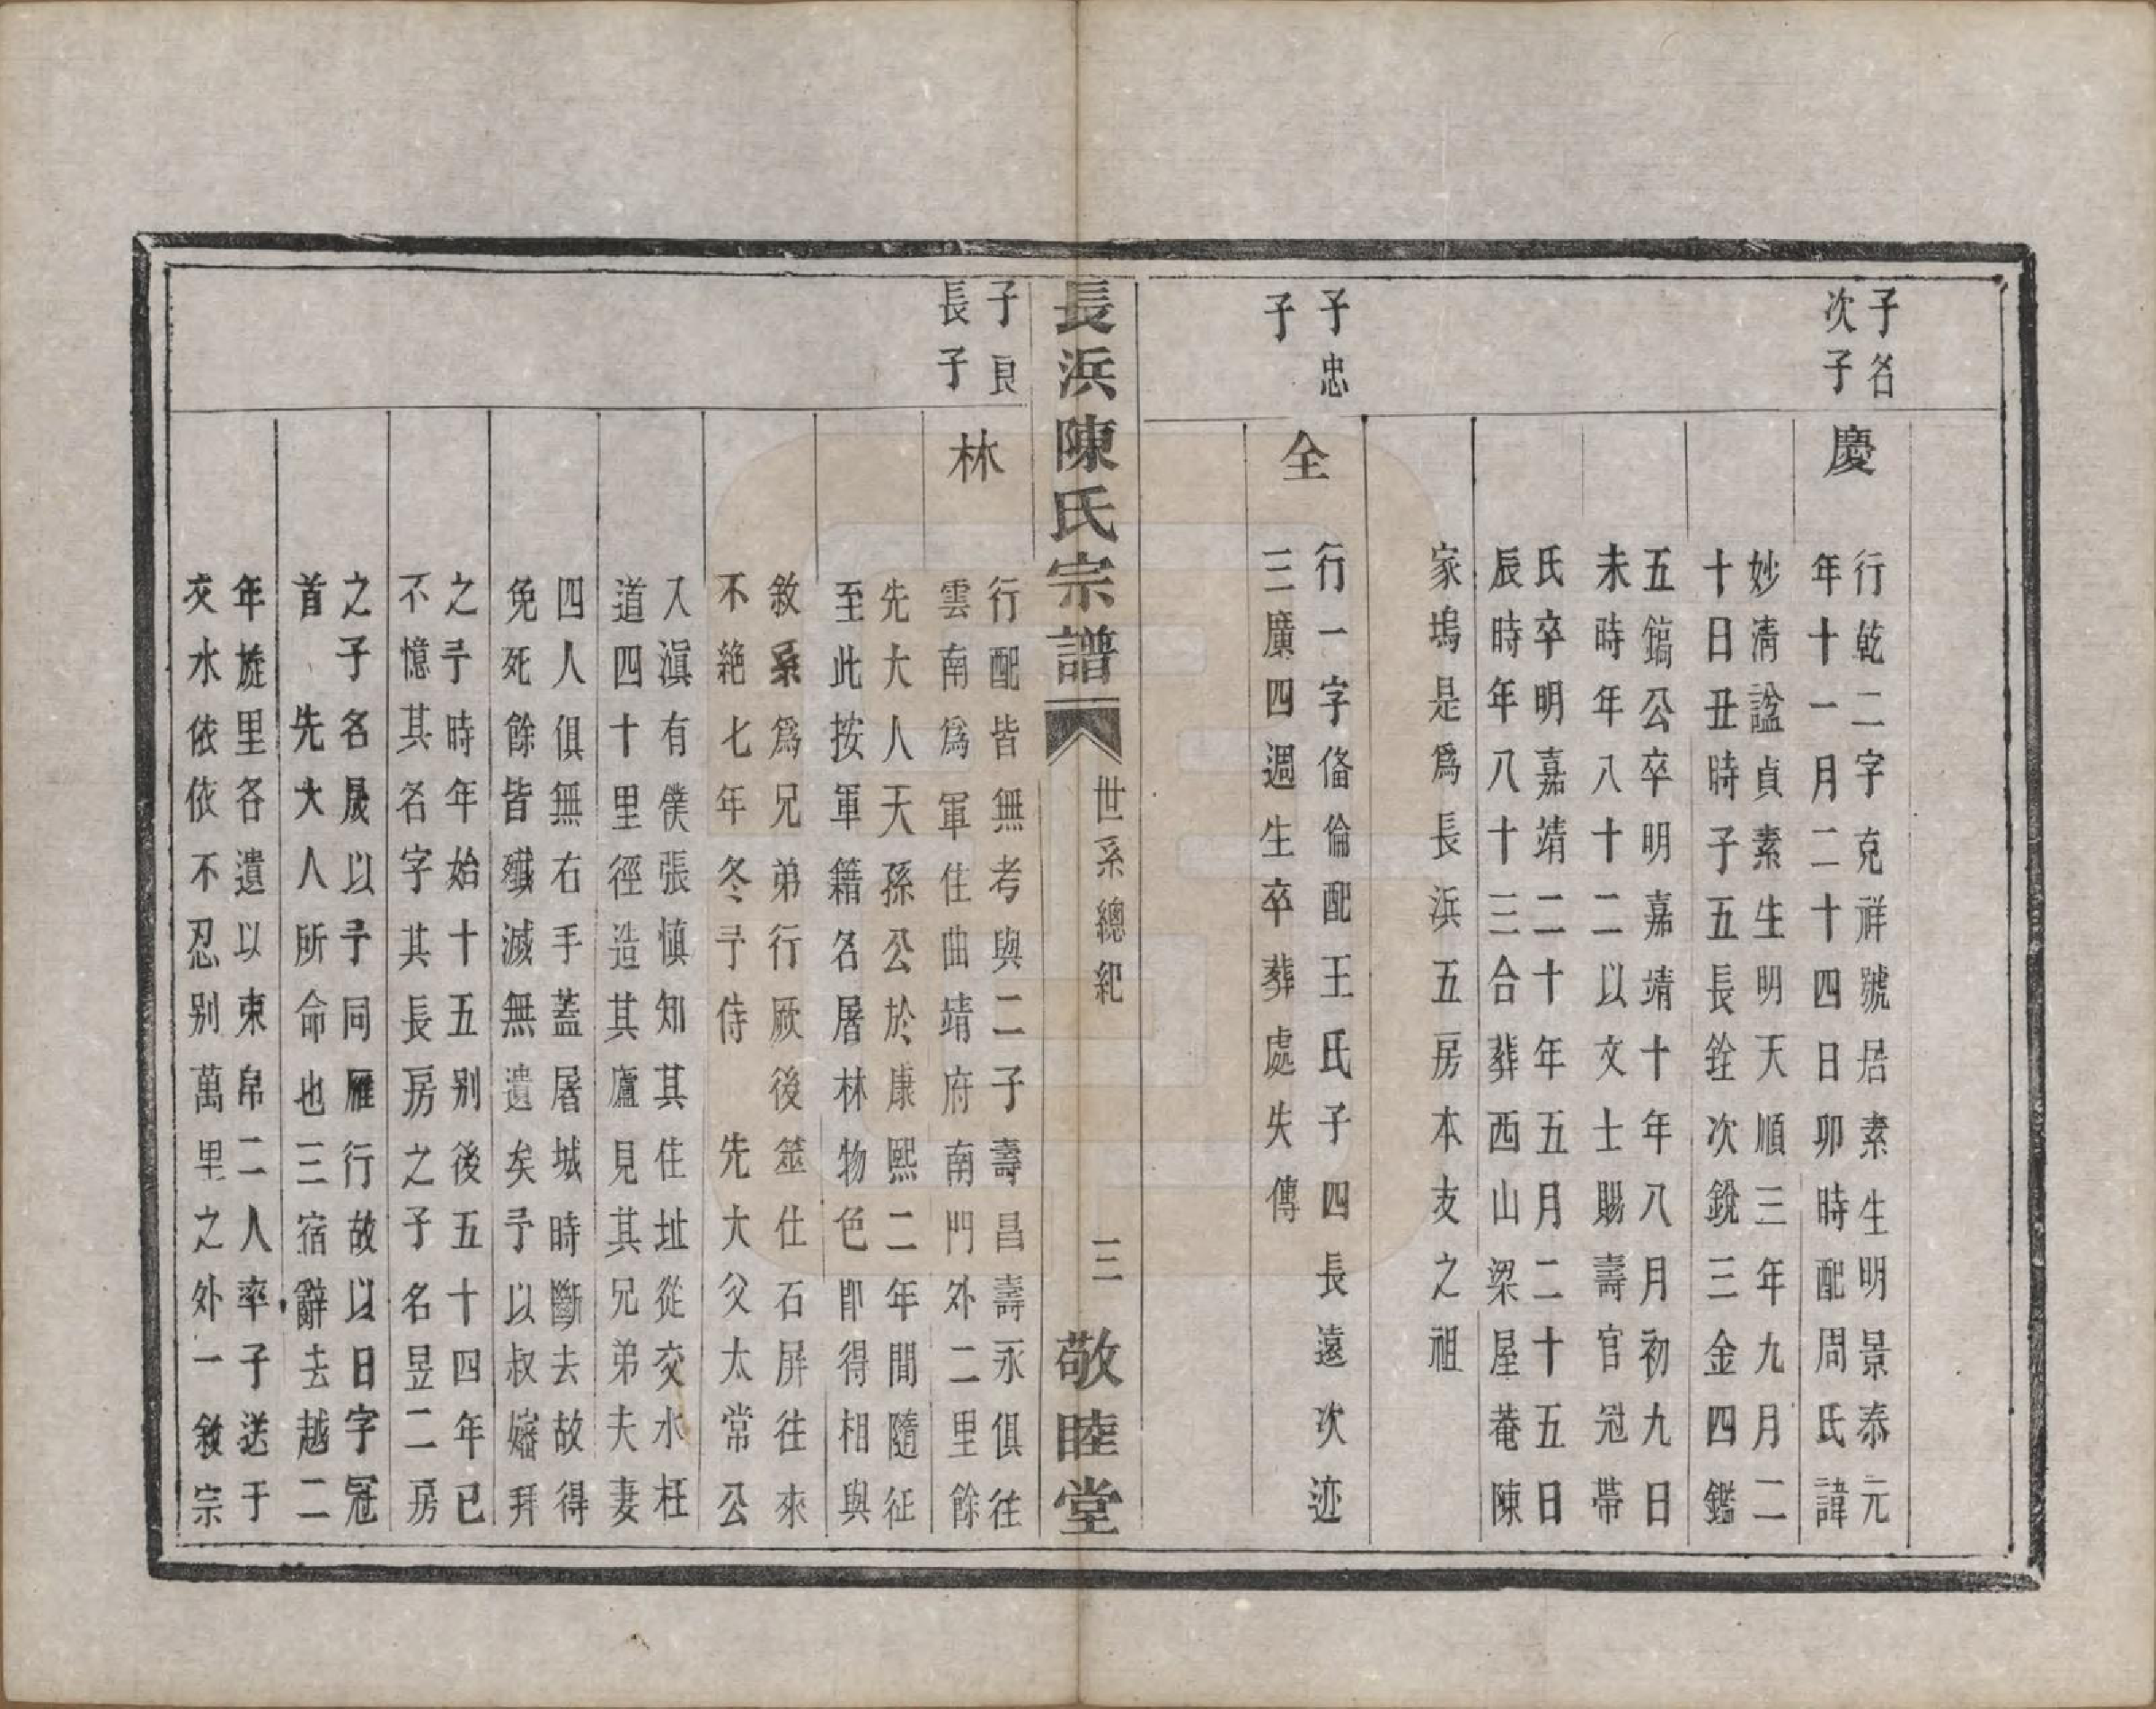 子名
次子
慶
行乾二字克祥號居素生明景泰元
年十一月二十四日卯時配周氏諱
妙清諡貞素生明天順三年九月二
十日丑時子五長銓次銳三金四鑑
五鎬公卒明嘉靖十年八月初九日
未時年八十二以文士賜壽官冠帶
氏卒明嘉靖二十年五月二十五日
辰時年八十三合葬西山梁屋菴陳
家塢是爲長浜五房本支之祖
子忠
子
全
行一字俻倫配王氏子四長遠次迹
三廣四週生卒葬處失傳
長浜陳氏宗譜
世系總紀
三
敬睦堂
子良
長子
林
行配皆無考與二子壽昌壽永俱往
雲南爲軍住曲靖府南門外二里餘
先大人天孫公於康熙二年間隨征
至此按軍籍名屠林物色卽得相與
敘系爲兄弟行厥後筮仕石屏往來
不絶七年冬予侍　先大父太常公
入滇有僕張慎知其住址從交水枉
道四十里徑造其廬見其兄弟夫妻
四人俱無右手蓋屠城時斷去故得
免死餘皆殲滅無遺矣予以叔嬸拜
之予時年始十五别後五十四年已
不憶其名字其長房之子名昱二房
之子名晟以予同雁行故以日字冠
首　先大人所命也三宿辭去越二
年旋里各遺以束帛二人率子送于
交水依依不忍别萬里之外一敘宗